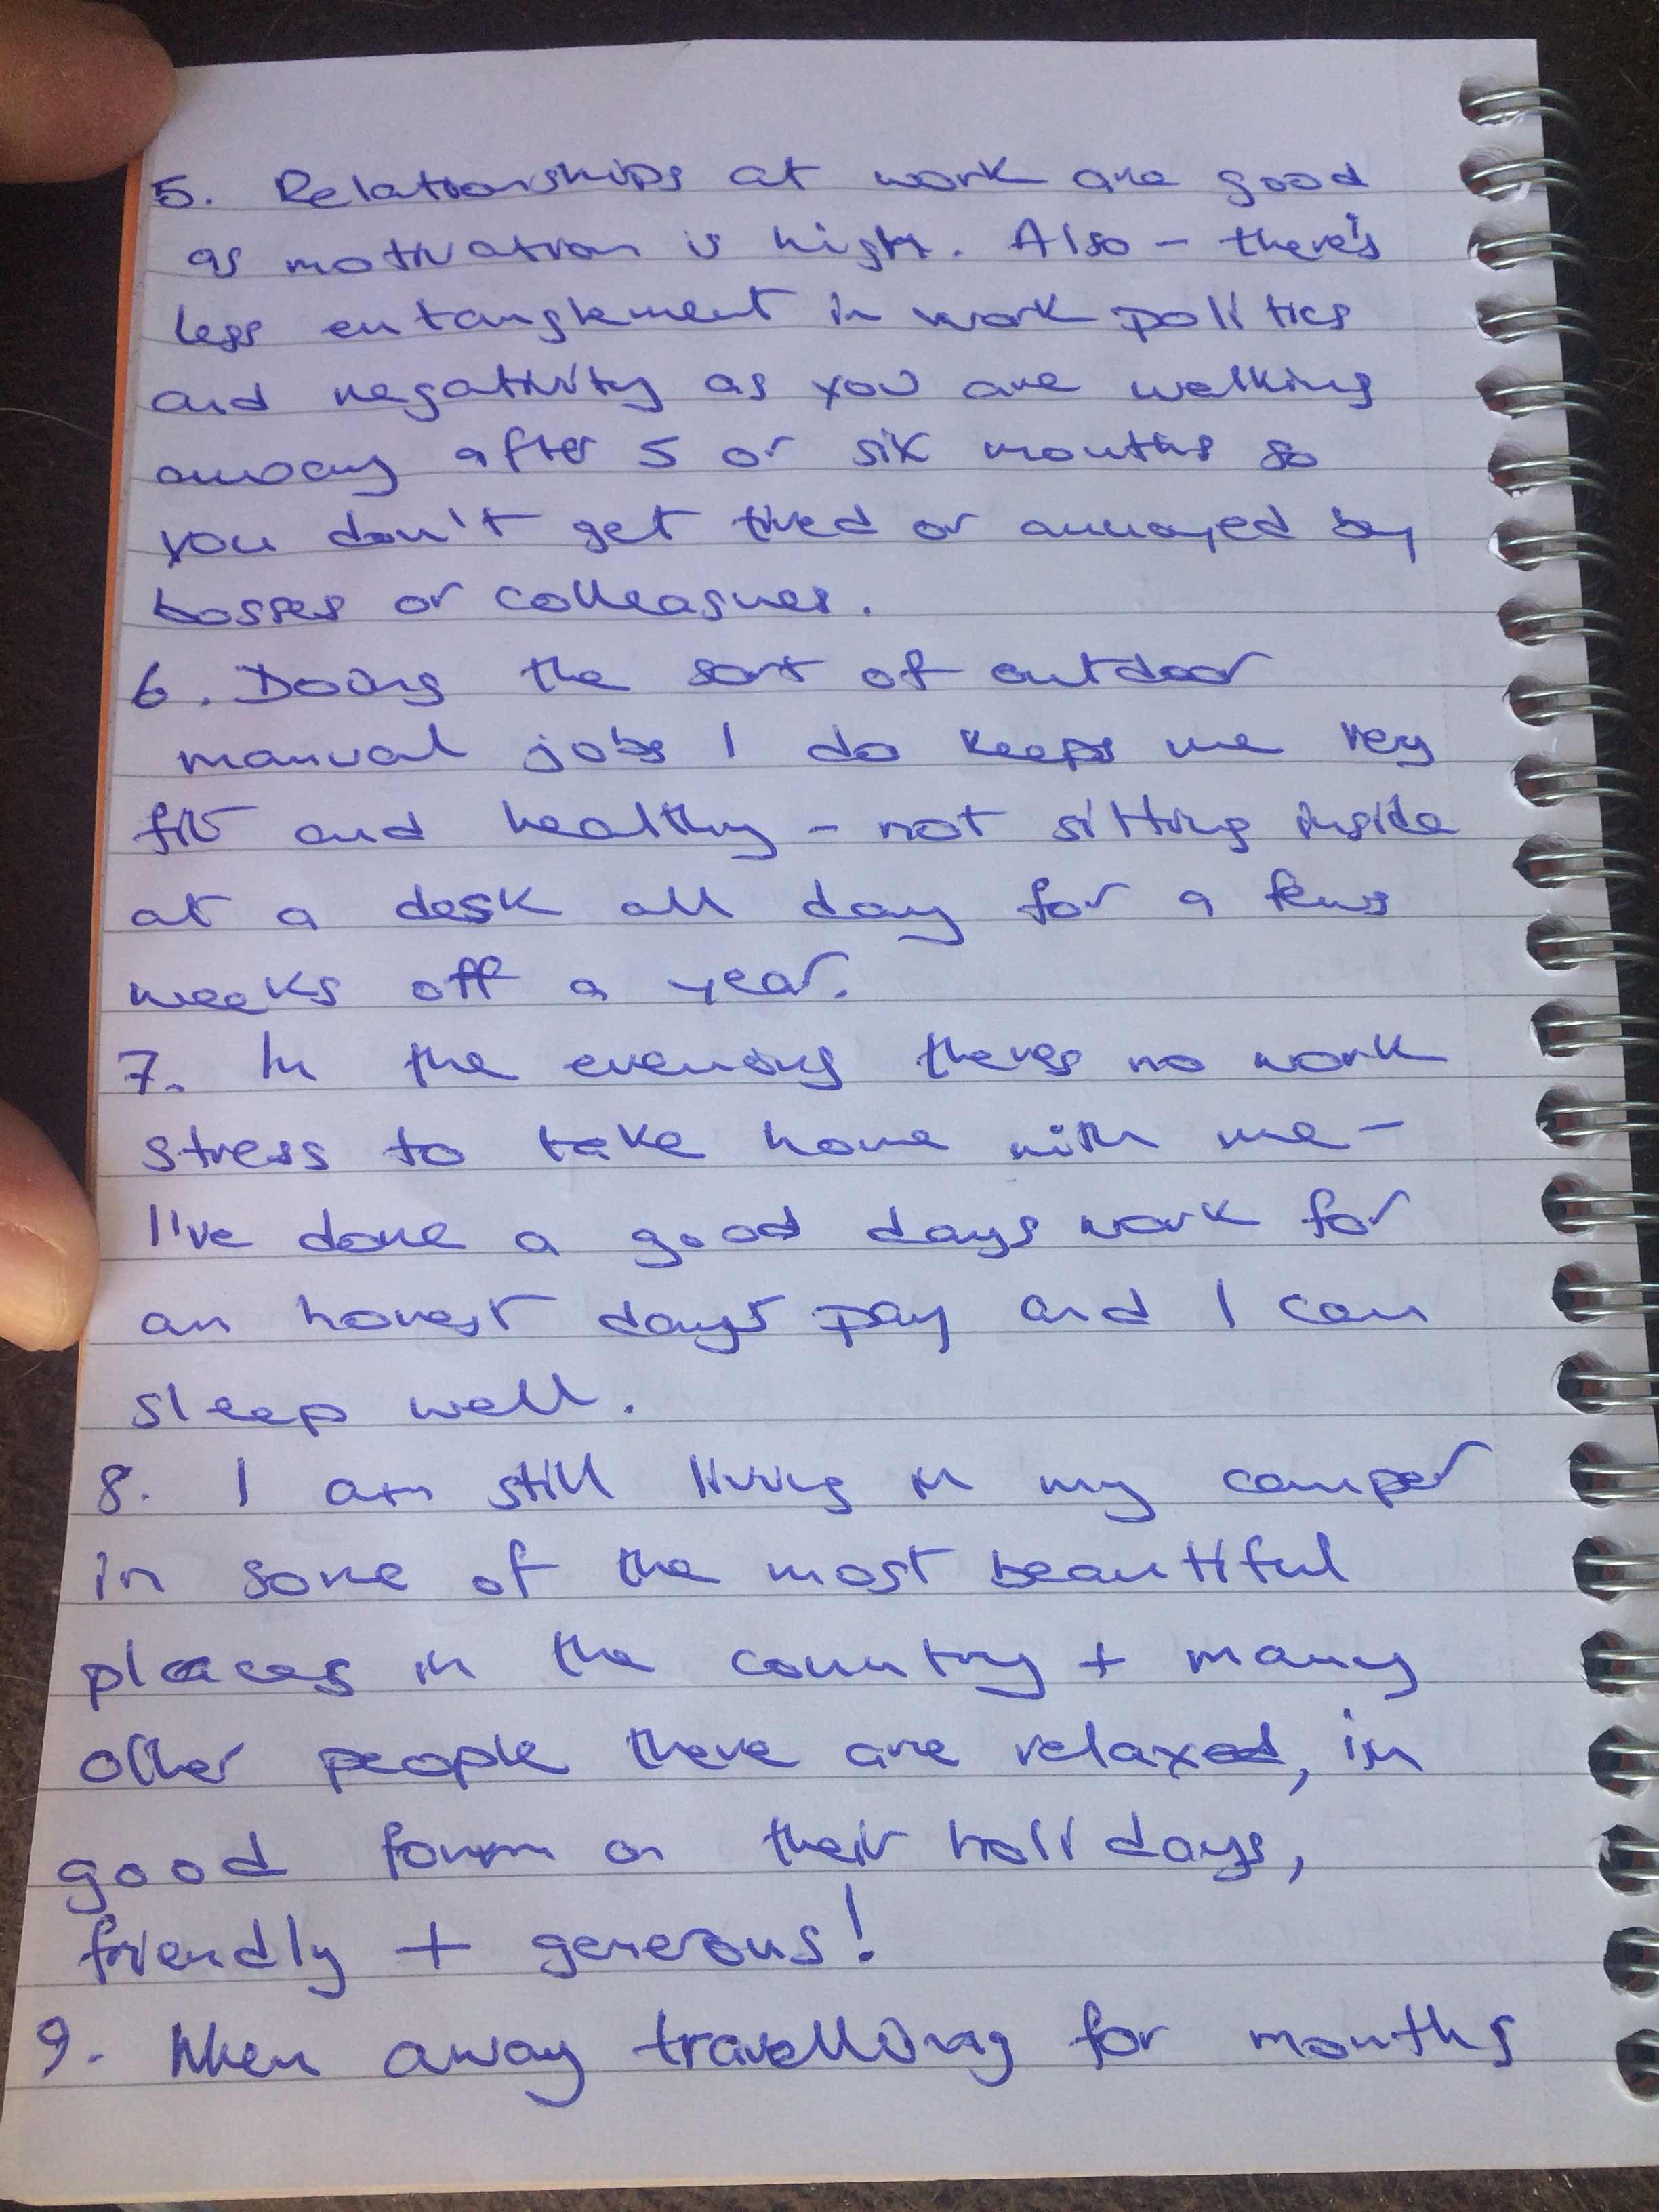 5. Relationships at work are good
as motivation is high. Also – there's
less entanglement in work politics
and negativity as you are walking
away after 5 or six months so
you don't get tired or annoyed by
bosses or colleagues.
6. Doing the sort of outdoor
manual jobs I do keeps me very
fit and healthy – not sitting inside
at a desk all day for a few
weeks off a year.
7. In the evening theres no work
stress to take home with me –
I've done a good days work for
an honest days pay and I can
sleep well.
8. I am still living in my camper
in some of the most beautiful
places in the country + many
other people there are relaxed, in
good form on their holidays,
friendly + generous!
9. When away travelling for months